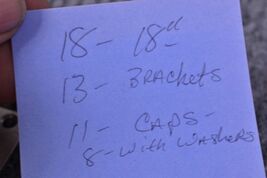 18 - 18"
13 - Brackets
11 - CAPS -
8 - with WASHERS